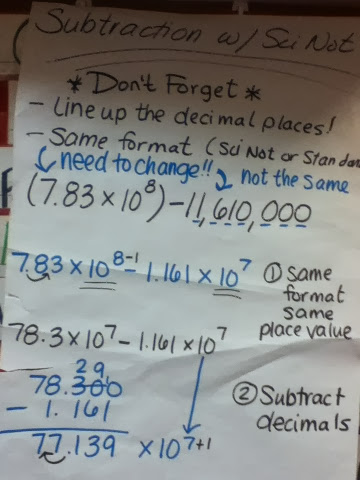 Subtraction w/ Sci Not
* Don't Forget *
- Line up the decimal places!
- Same format (Sci Not or Standar
need to change!! not the same
(7.83 × 10⁸) - 11,610,000
7.83 × 10⁸⁻¹ - 1.161 × 10⁷ ① same
format
same
place value
78.3 × 10⁷ - 1.161 × 10⁷
2 9 1
78.300 ② Subtract
- 1.161 decimals
77.139 × 10⁷⁺¹